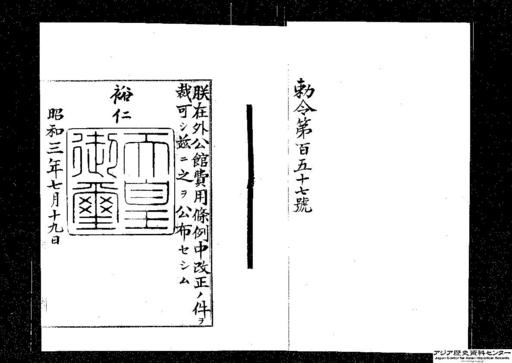 勅令第百五十七號
朕在外公館費用條例中改正ノ件ヲ
裁可シ茲ニ之ヲ公布セシム
裕仁
天皇
御璽
昭和三年七月十九日
アジア歴史資料センター
Japan Center for Asian Historical Records